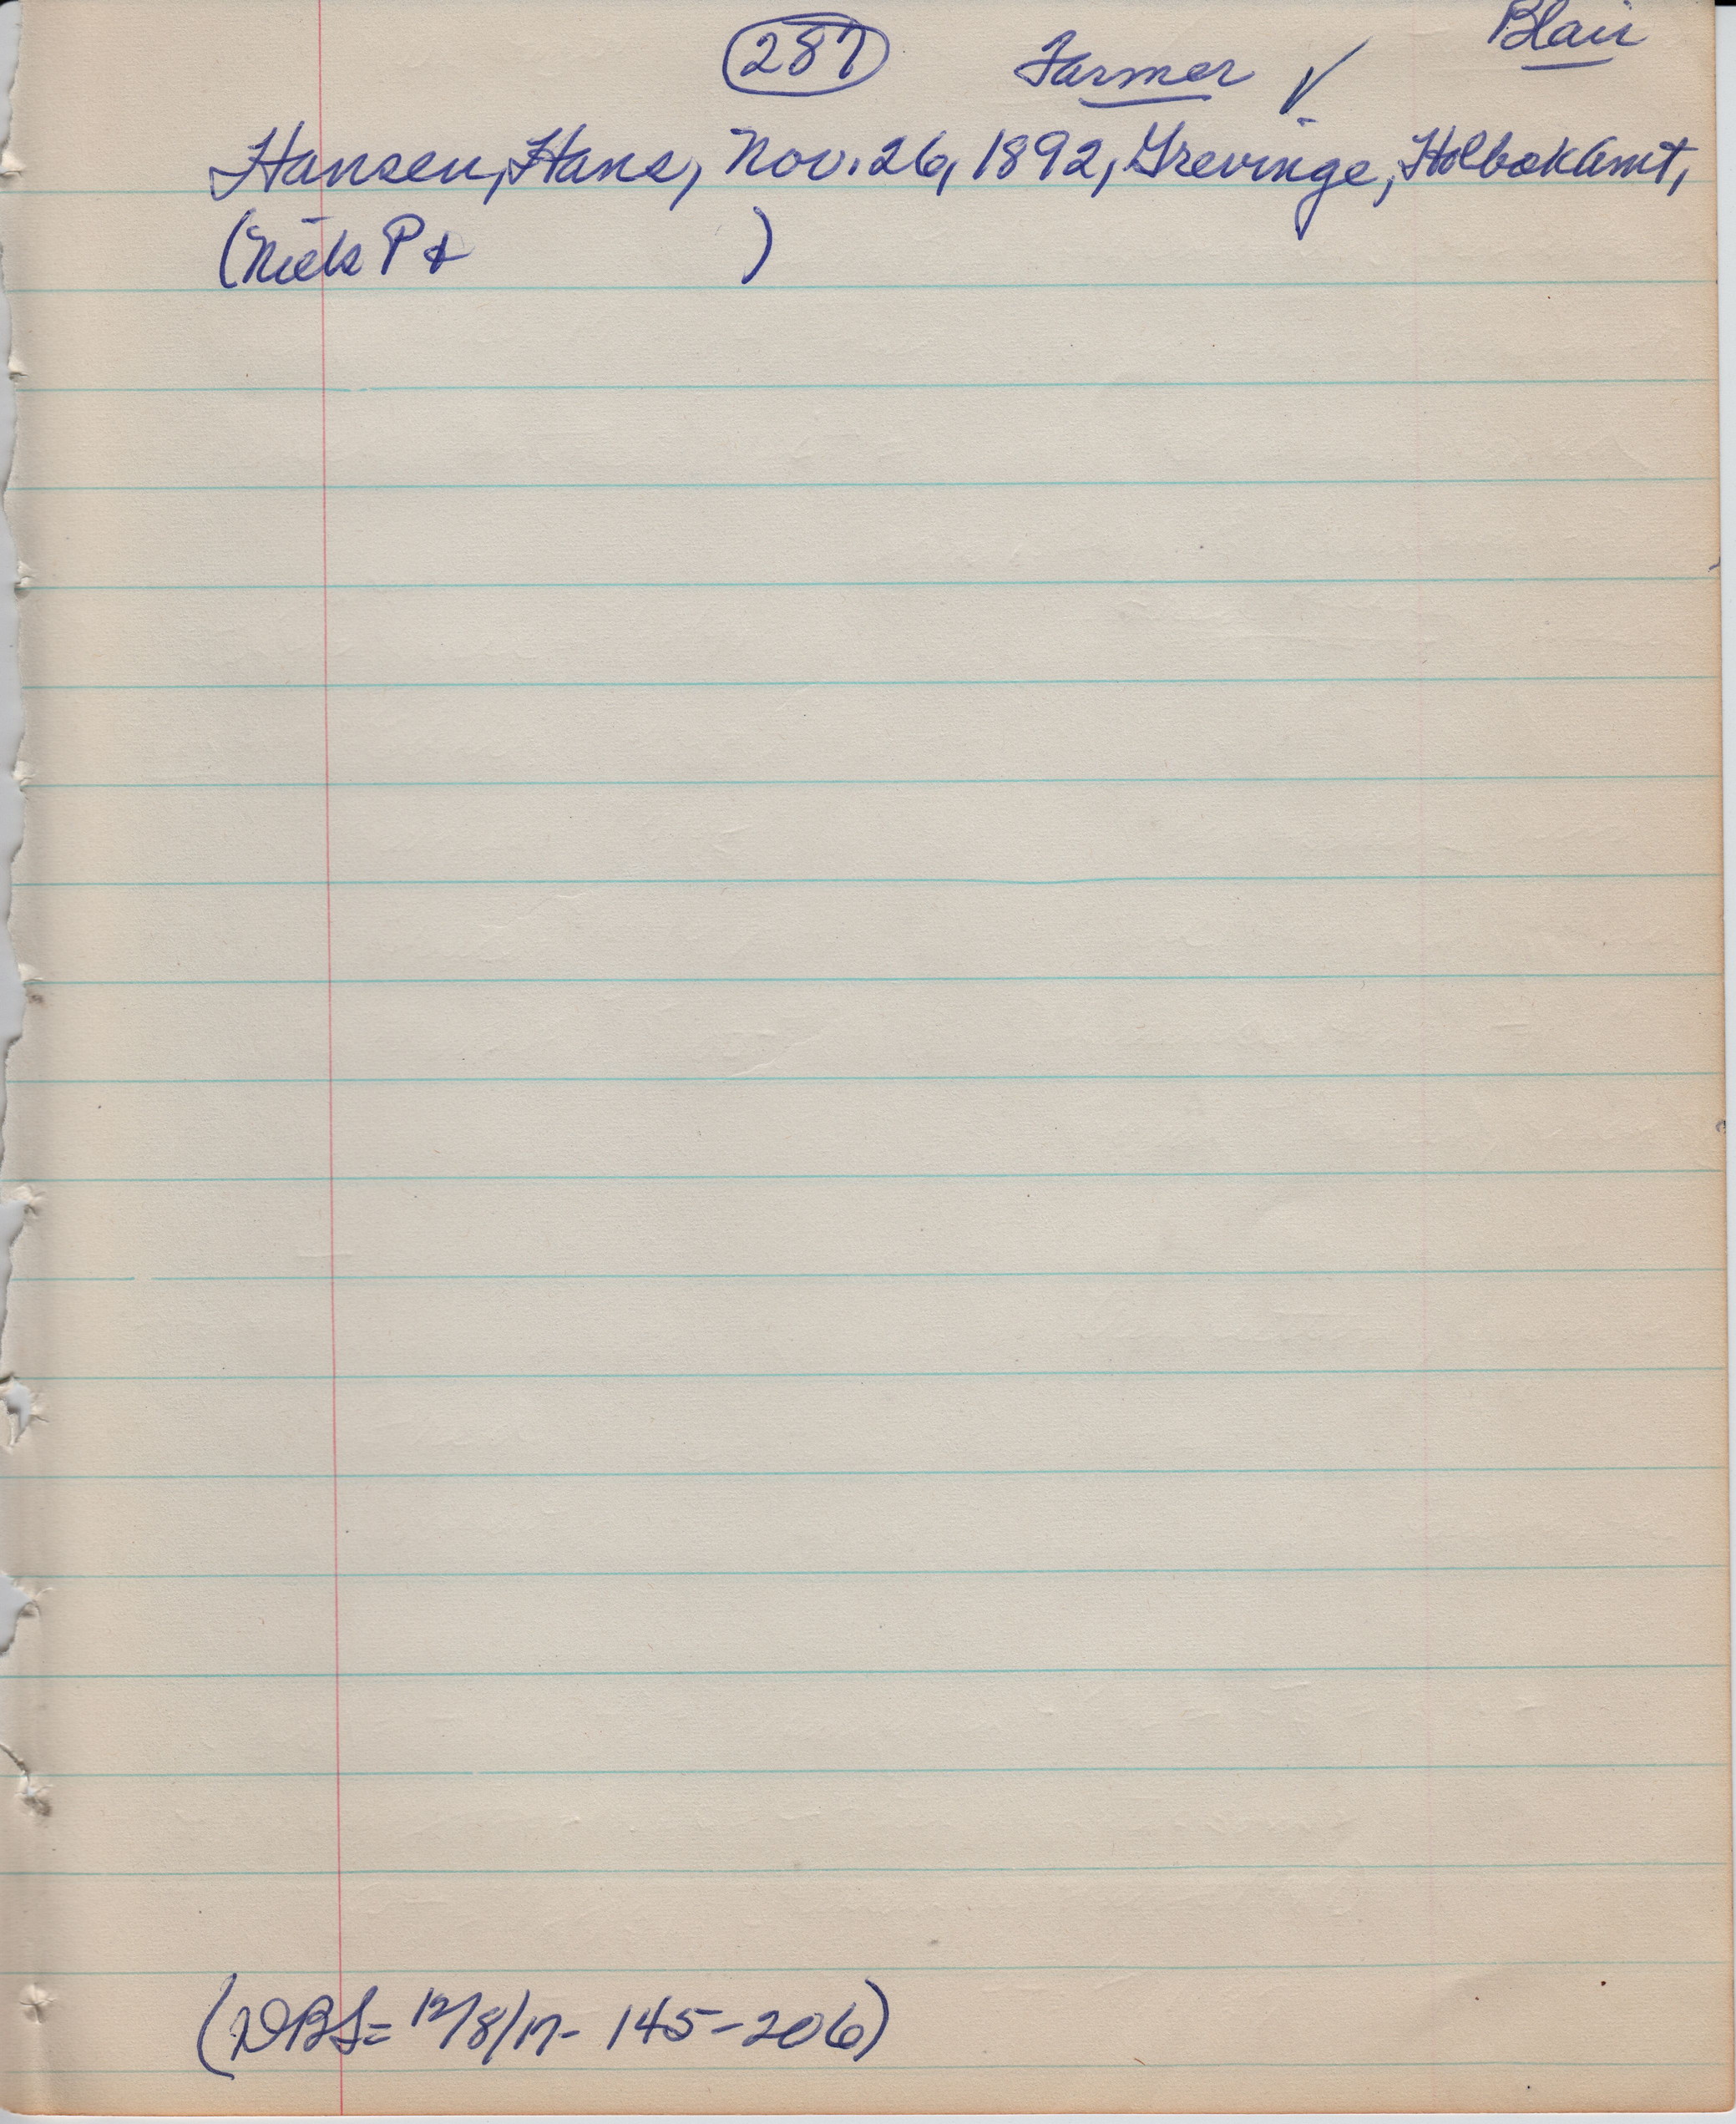 287 Farmer ✓ Blair
Hansen, Hans, Nov. 26, 1892, Grevinge, Holbæk Amt,
(Niels P & )
(DBS= 12/8/17- 145-206)